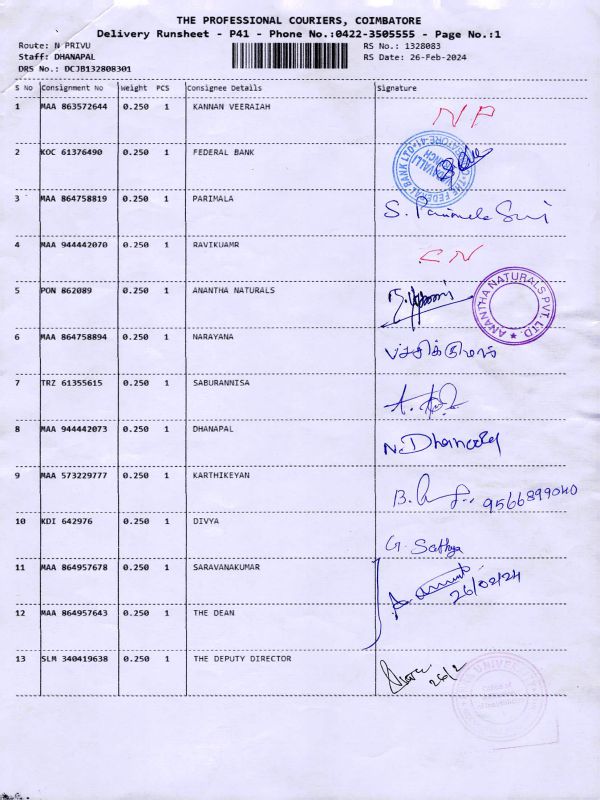 THE PROFESSIONAL COURIERS, COIMBATORE
Delivery Runsheet - P41 - Phone No.:0422-3505555 - Page No.:1
Route: N PRIVU
RS No.: 1328083
Staff: DHANAPAL
RS Date: 26-Feb-2024
DRS No.: DCJB132808301
S No Consignment No Weight PCS Consignee Details Signature
1 MAA 863572644 0.250 1 KANNAN VEERAIAH NP
2 KOC 61376490 0.250 1 FEDERAL BANK
THE FEDERAL BANK LTD
3 MAA 864758819 0.250 1 PARIMALA S. Parimala
4 MAA 944442070 0.250 1 RAVIKUAMR CN
5 PON 862089 0.250 1 ANANTHA NATURALS
ANANTHA NATURALS PVT. LTD.
6 MAA 864758894 0.250 1 NARAYANA
7 TRZ 61355615 0.250 1 SABURANNISA
8 MAA 944442073 0.250 1 DHANAPAL N. Dhanapal
9 MAA 573229777 0.250 1 KARTHIKEYAN 9566899040
10 KDI 642976 0.250 1 DIVYA G. Sathya
11 MAA 864957678 0.250 1 SARAVANAKUMAR
26/02/24
12 MAA 864957643 0.250 1 THE DEAN
13 SLM 340419638 0.250 1 THE DEPUTY DIRECTOR 26/2
UNIVERSITY